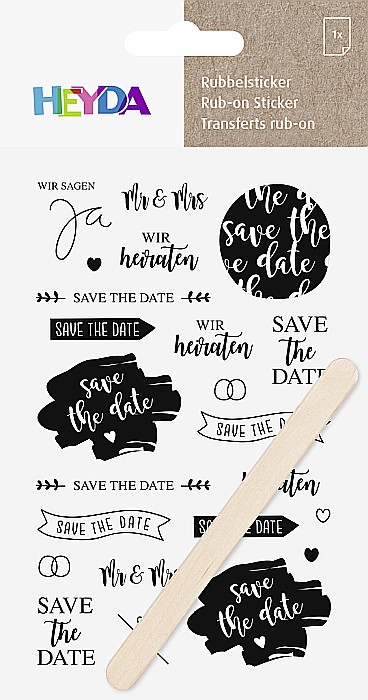 1x
HEYDA
Rubbelsticker
Rub-on Sticker
Transferts rub-on
WIR SAGEN
Ja
Mr & Mrs
WIR
heiraten
the d
save the
ve date
the d
SAVE THE DATE
SAVE THE DATE
WIR
heiraten
SAVE
the
DATE
save
the date
SAVE THE DA
SAVE THE DATE
iraten
SAVE THE DATE
SAVE THE DATE
Mr & Mrs
save
the date
SAVE
the
DATE